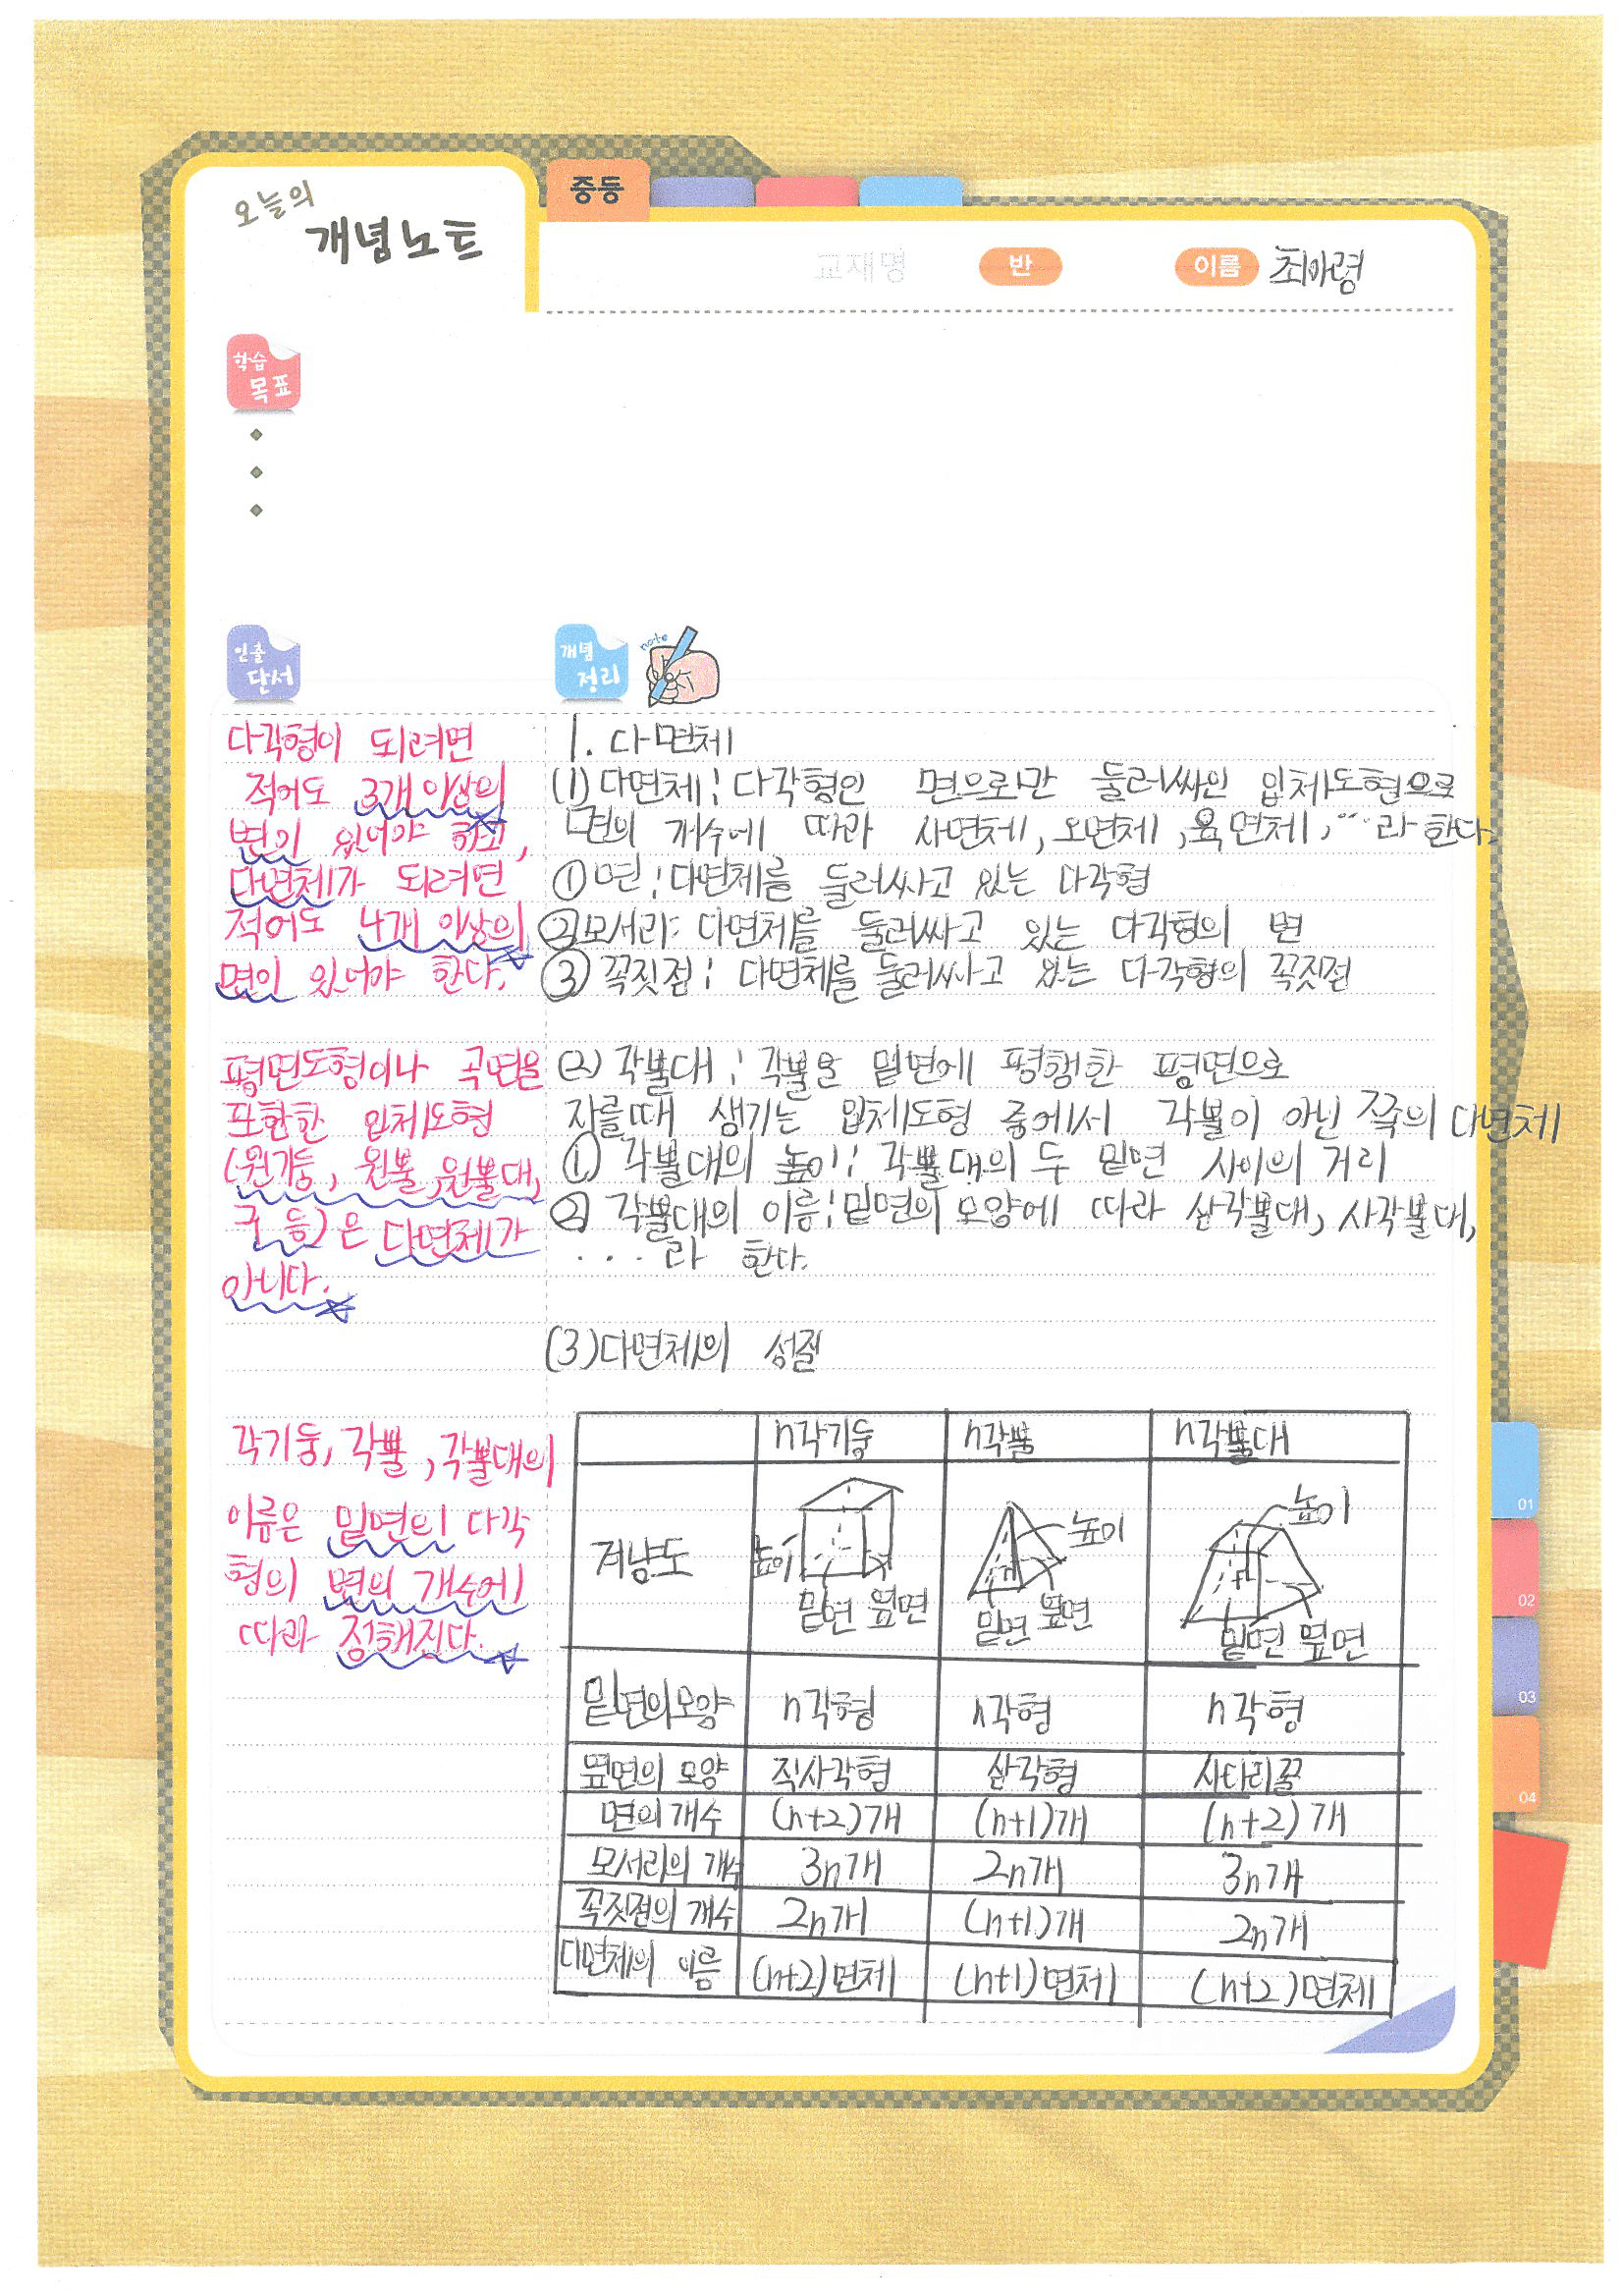 오늘의
개념노트
중등
교재명
반
이름 최아령
학습
목표
인출
단서
다각형이 되려면
적어도 3개 이상의
변이 있어야 하고,
다면체가 되려면
적어도 4개 이상의
면이 있어야 한다.
평면도형이나 곡면을
포함한 입체도형
(원기둥, 원뿔, 원뿔대,
구 등)은 다면체가
아니다.
각기둥, 각뿔, 각뿔대의
이름은 밑면의 다각
형의 변의 개수에
따라 정해진다.
개념
정리
note
1. 다면체
(1) 다면체: 다각형인 면으로만 둘러싸인 입체도형으로
면의 개수에 따라 사면체, 오면체, 육면체, … 라 한다.
① 면: 다면체를 둘러싸고 있는 다각형
② 모서리: 다면체를 둘러싸고 있는 다각형의 변
③ 꼭짓점: 다면체를 둘러싸고 있는 다각형의 꼭짓점
(2) 각뿔대: 각뿔을 밑면에 평행한 평면으로
자를때 생기는 입체도형 중에서 각뿔이 아닌 쪽의 다면체
① 각뿔대의 높이: 각뿔대의 두 밑면 사이의 거리
② 각뿔대의 이름: 밑면의 모양에 따라 삼각뿔대, 사각뿔대,
... 라 한다.
(3) 다면체의 성질
n각기둥 n각뿔 n각뿔대
겨냥도
높이 밑면 옆면
높이 밑면 옆면
높이 밑면 옆면
밑면의 모양 n각형 n각형 n각형
옆면의 모양 직사각형 삼각형 사다리꼴
면의 개수 (n+2)개 (n+1)개 (n+2)개
모서리의 개수 3n개 2n개 3n개
꼭짓점의 개수 2n개 (n+1)개 2n개
다면체의 이름 (n+2)면체 (n+1)면체 (n+2)면체
01
02
03
04